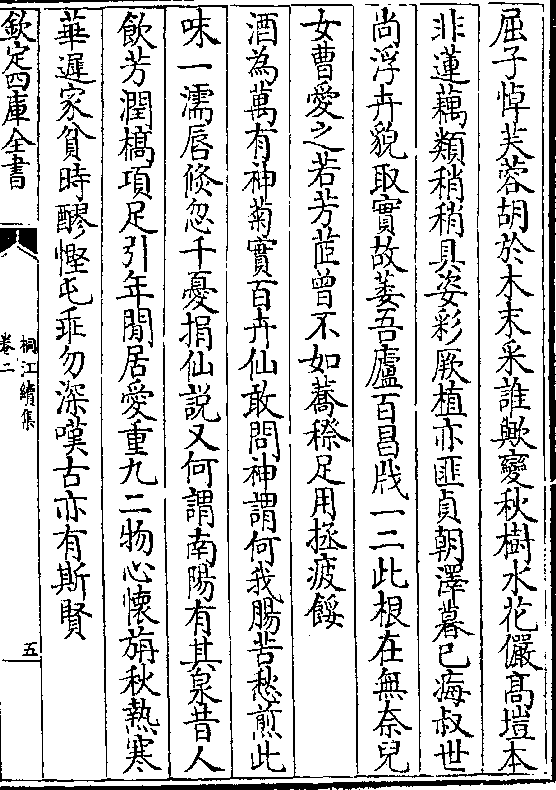 屈子悼芙蓉胡於木末采誰歟變秋樹水花儼髙塏本
非蓮藕類稍稍具姿彩厥植亦匪貞朝澤暮已痗叔世
尚浮卉貌取實故萎吾廬百昌戕一二此根在無奈兒
女曹愛之若芳茝曾不如蕎穄足用拯疲餒
酒為萬有神菊實百卉仙敢問神謂何我腸苦愁煎此
味一濡唇倐忽千憂捐仙説又何謂南陽有其泉昔人
飲芳潤槁項足引年閒居愛重九二物心懐旃秋熱寒
華遲家貧時醪慳屯乖勿深嘆古亦有斯賢
欽定四庫全書
桐江續集
卷二
五